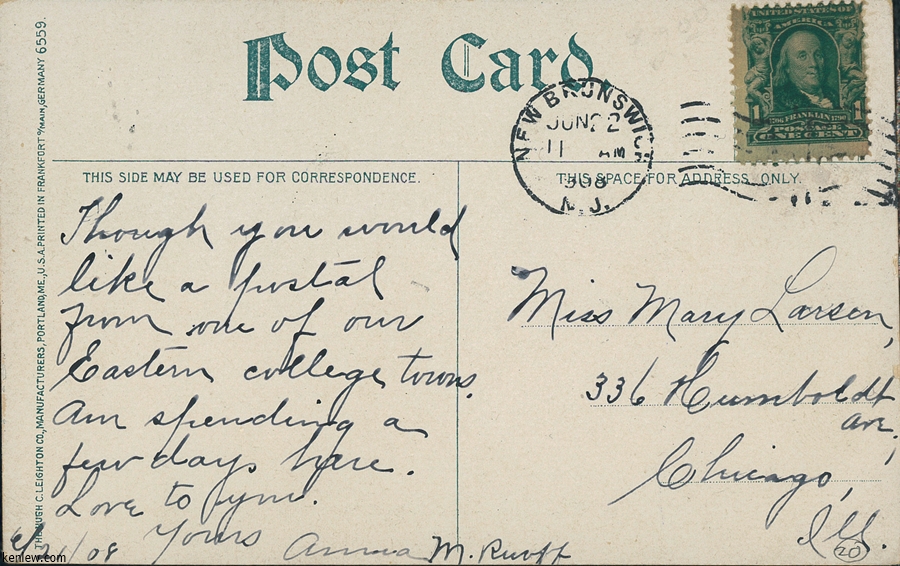 THE HUGH C. LEIGHTON CO., MANUFACTURERS, PORTLAND, ME., U.S.A. PRINTED IN FRANKFORT o/MAIN, GERMANY 6559.
Post Card.
UNITED STATES OF
AMERICA
1706 FRANKLIN 1790
1 1
POSTAGE
ONE CENT
NEW BRUNSWICK
JUN 22
11 AM
908
N.J.
THIS SIDE MAY BE USED FOR CORRESPONDENCE.
THIS SPACE FOR ADDRESS ONLY.
Though you would
like a postal
from one of our
Eastern college towns.
Am spending a
few days here.
Love to you.
Yours
Anna M. Ruoff
/08
Miss Mary Larsen,
336 Humboldt
ave,
Chicago,
Ill.
20
kenlew.com